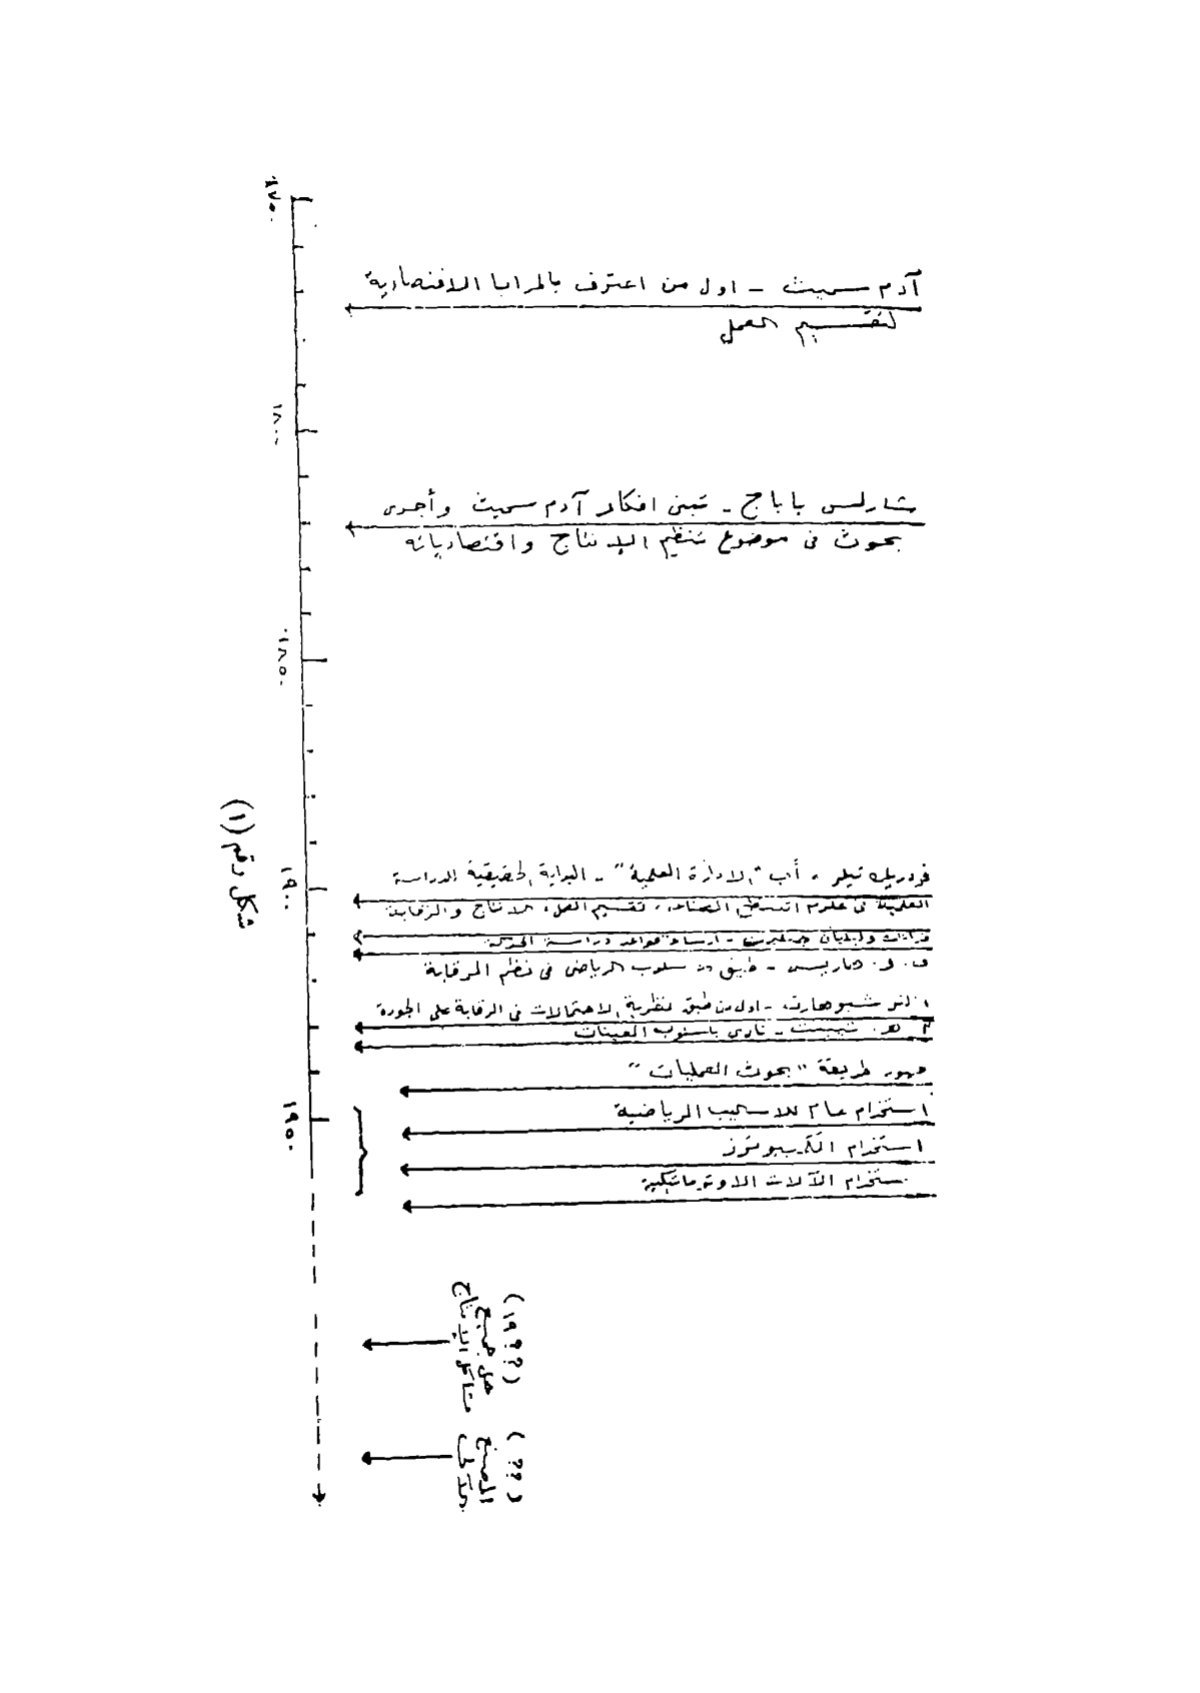 ١٧٥٠
آدم سميث - اول من اعترف بالمزايا الاقتصادية
لتقسيم العمل
١٨٠٠
شارلس باباج - تبنى افكار آدم سميث وأجرى
بحوث فى موضوع تنظيم الإنتاج واقتصادياته
١٨٥٠
شكل رقم (١)
١٩٠٠
فردريك تيلر - أب "الادارة العلمية" - البداية الحقيقية للدراسة
العلمية فى علوم التنظيم الصناعى، تقسيم العمل، الانتاج والرقابة
فرانك وليليان جيلبرث - ارساء قواعد دراسة الحركة
ف. و. هاريس - طبق الاسلوب الرياضى فى نظم المراقبة
والتر شيوهارت - اول من طبق نظرية الاحتمالات فى الرقابة على الجودة
هـ. تيبيت - نادى باسلوب العينات
ظهور طريقة "بحوث العمليات"
١٩٥٠
استخدام عام للاساليب الرياضية
استخدام الكمبيوتر
استخدام الآلات الاوتوماتيكية
(١٩؟؟)
حل جميع
مشاكل الإنتاج
(؟؟)
المصنع
الآلى